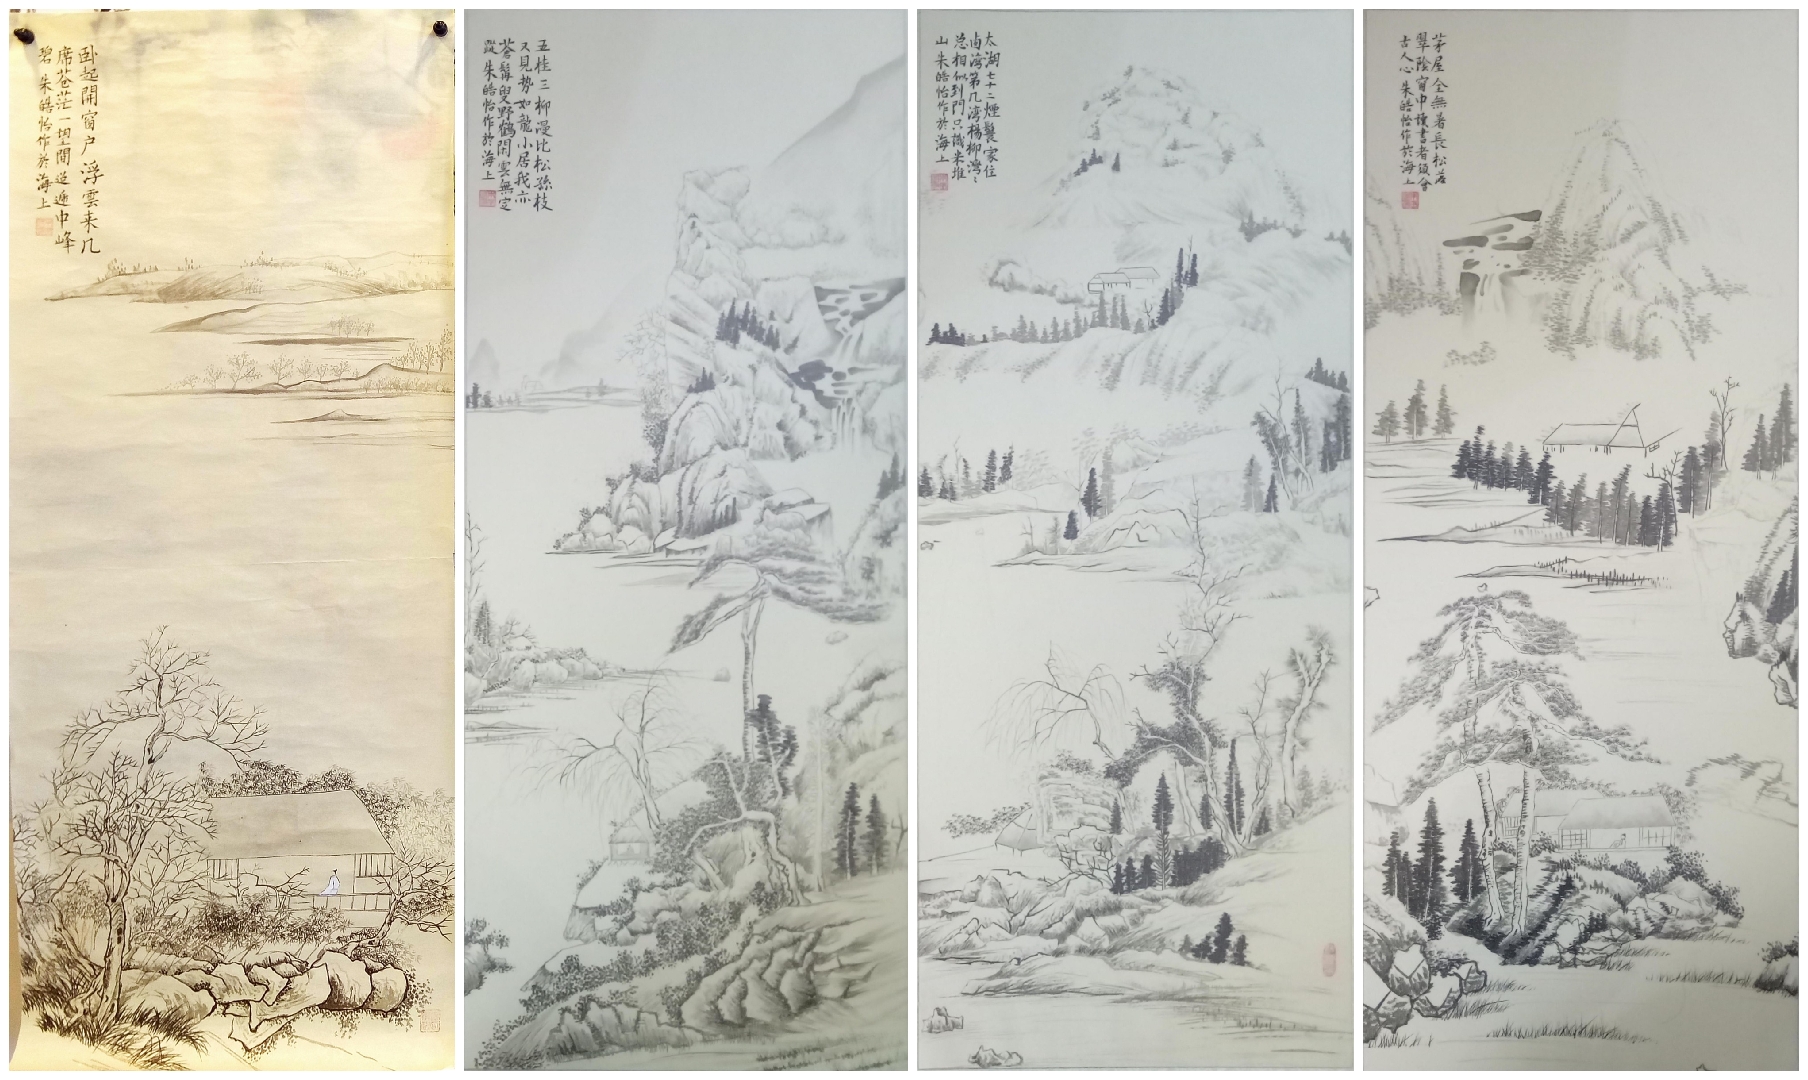 卧起開窗户浮雲来几
席苍茫一望間遥遞中峰
碧 朱皓怡作於海上
五桂三柳漫比松孫枝
又見势如龍小居我亦
蒼髯叟野鶴閒雲無定
蹤 朱皓怡作於海上
太湖七十二煙鬟家住
第几湾楊柳湾〻
总相似到門只識米堆
山 朱皓怡作於海上
茅屋全無暑長松落
翠陰窗中讀書者須會
古人心 朱皓怡作於海上